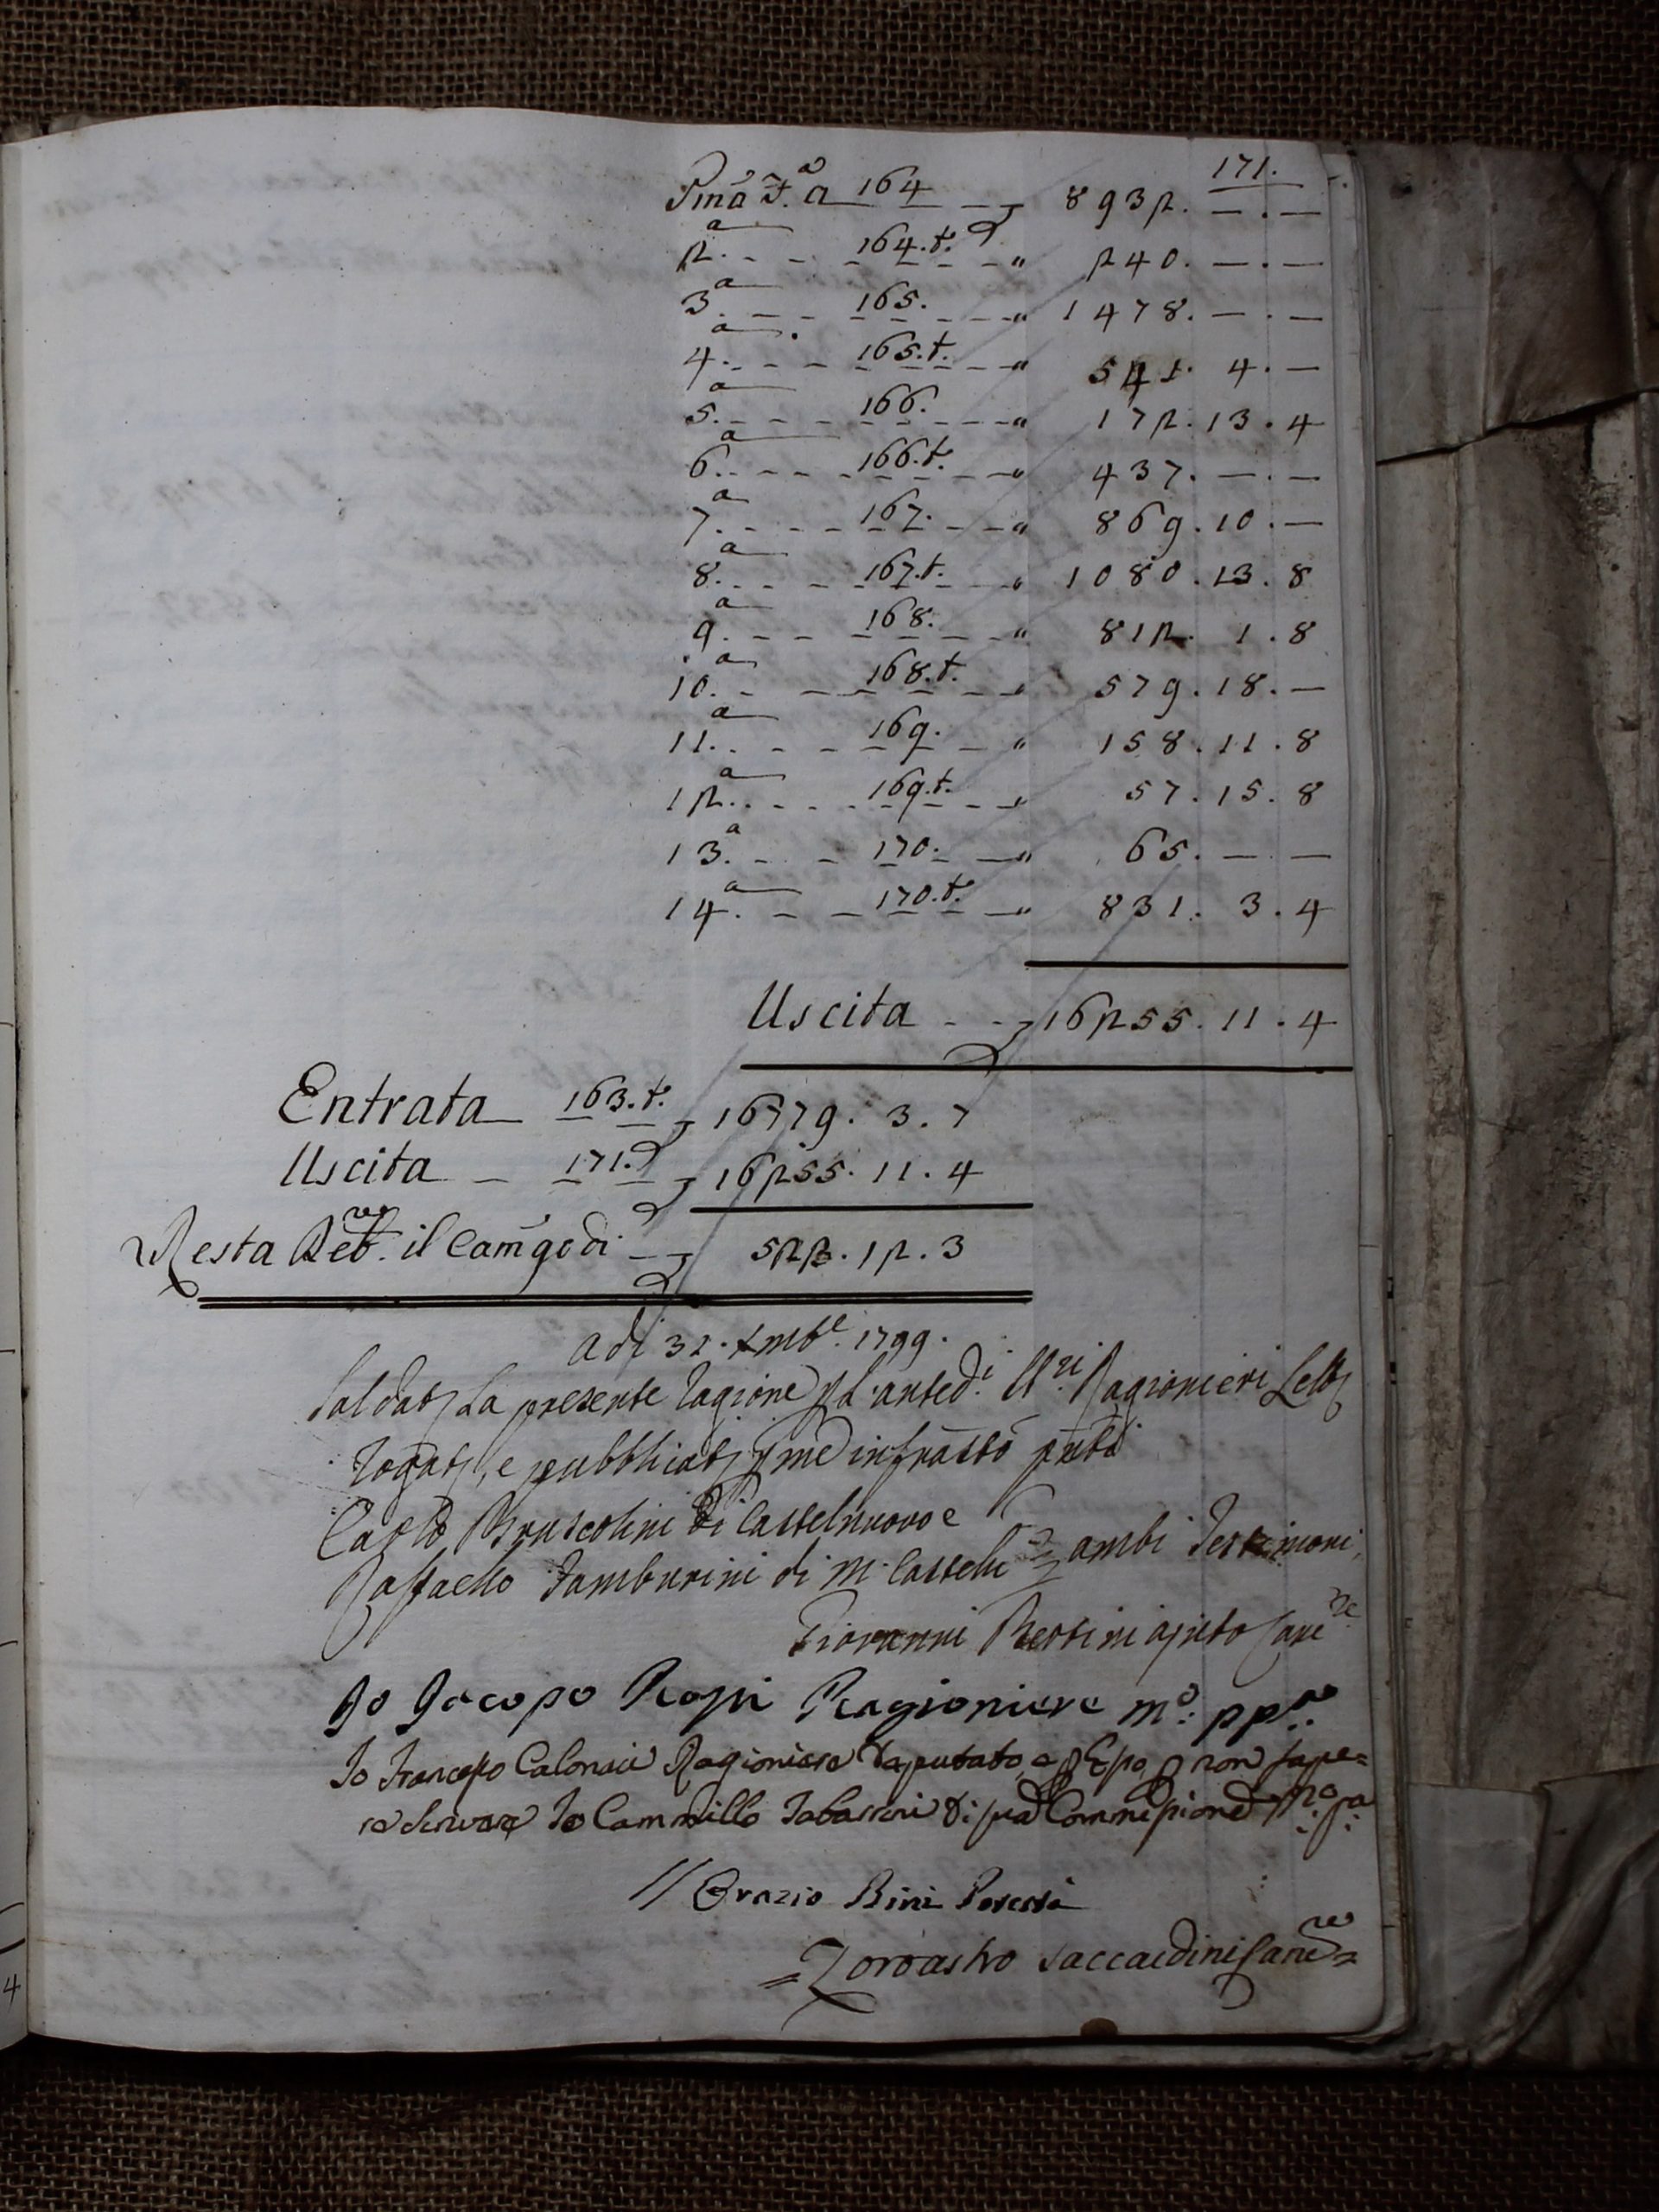 171.
Pma F.a a 164 8932. — . —
2.a 164.t. " 240. — . —
3.a 165. " 1478. — . —
4.a 165.t. " 541. 4. —
5.a 166. " 172. 13. 4
6.a 166.t. " 437. — . —
7.a 167. " 869. 10. —
8.a 167.t. " 1080. 13. 8
9.a 168. " 812. 1. 8
10.a 168.t. " 579. 18. —
11.a 169. " 158. 11. 8
12.a 169.t. " 57. 15. 8
13.a 170. " 65. — —
14.a 170.t. " 831. 3. 4
Uscita 16255. 11. 4
Entrata 163.t. 16779. 3. 7
Uscita 171. 16255. 11. 4
Resta Deb.re il Camgo di 523. 12. 3
Adi 31. Xmbe. 1799.
Saldato La presente ragione p. L'anted.i Ragionieri Letto
rogato, e pubblicato p me infratto pnti
Carlo Bruscolini di Castelnuovo e
Raffaello Tamburini di M. Castelli ambi Testimoni
Giovanni Bertini ajuto Canc.re
Io Jacopo Ragioniere mo: ppa:
Io Francesco Ragioniere deputato, e p Esso p non sape=
re scrivere Io Cammillo di sua Commissione Mo. pa:
// Orazio Bini
= Zoroastro Saccardini Canc.re =